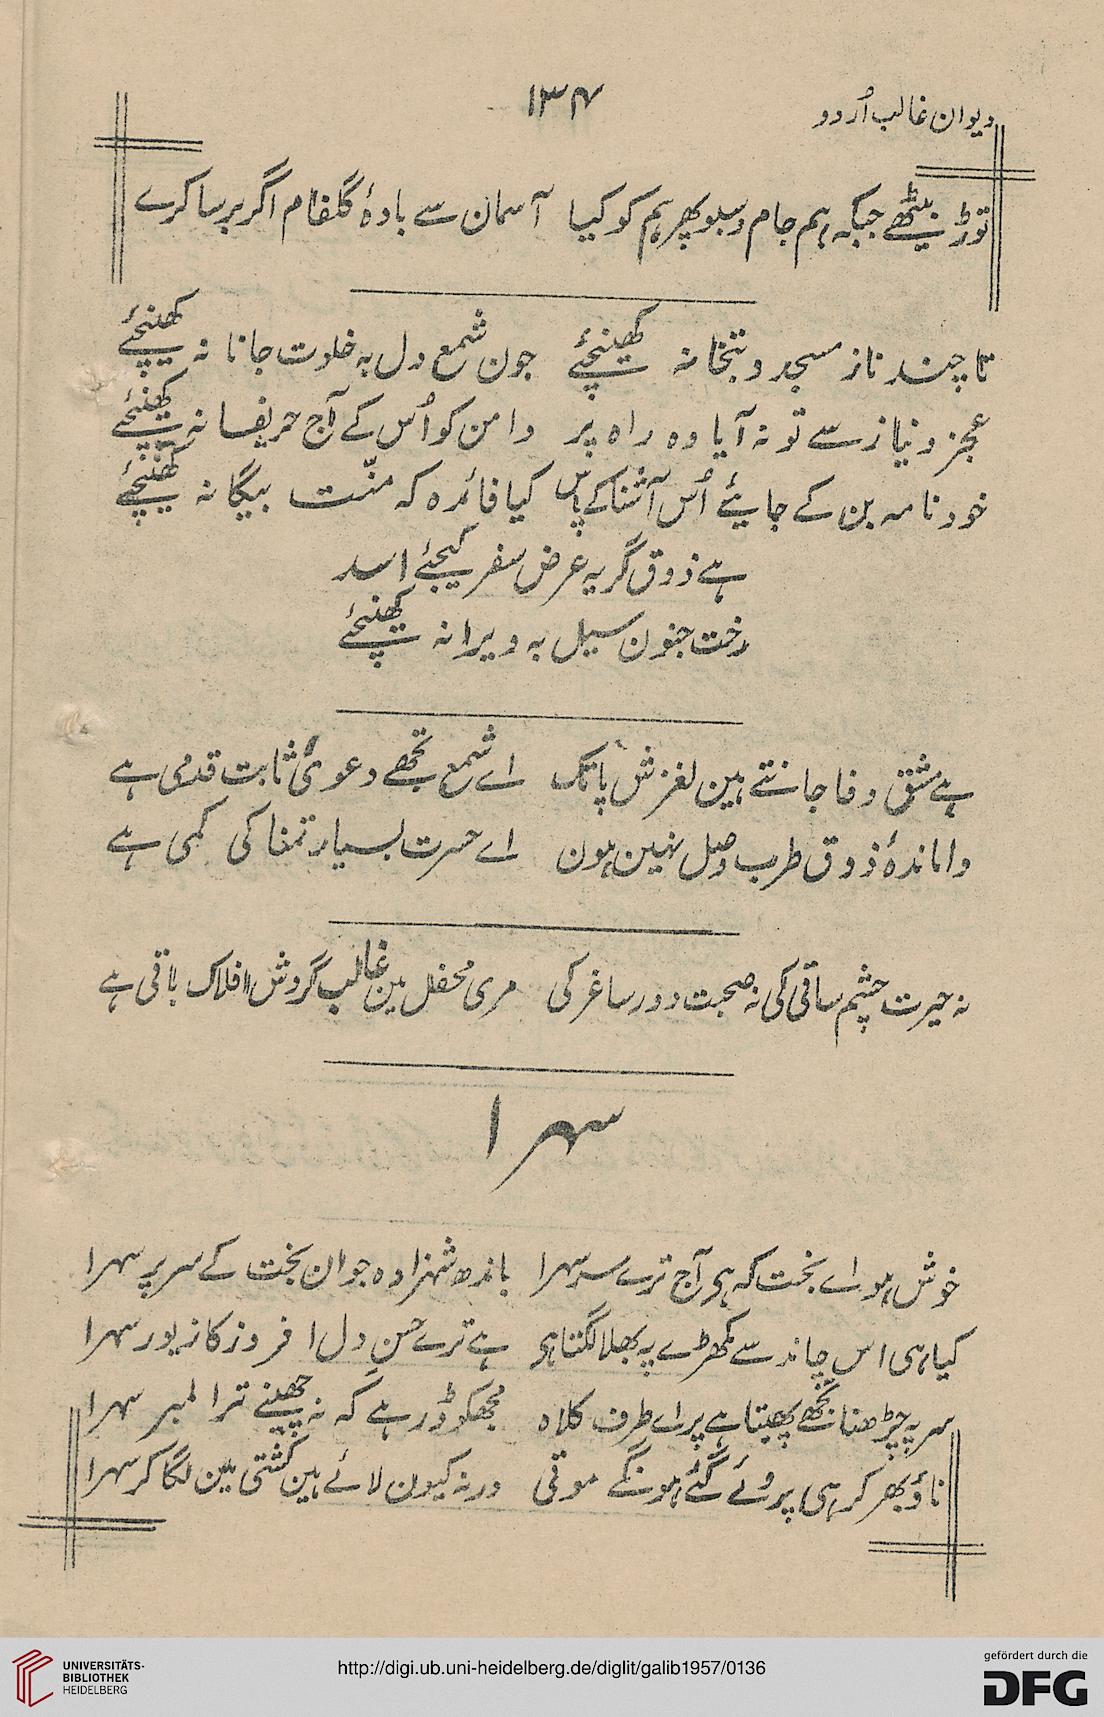 دیوان غالب اُردو
۱۳۴
توڑ بیٹھے جبکہ ہم جام و سبو پھر ہم کو کیا آسمان سے بادۂ گلفام اگر برسا کرے
تا چند ناز مسجد و بتخانہ کھینچئے جون شمع دل بہ خلوت جانانہ کھینچئے
عجز و نیاز سے تو نہ آیا وہ راہ پر دامن کو اُس کے آج حریفانہ کھینچئے
خود نامہ بن کے جایئے اُس آشنا کے پاس کیا فائدہ کہ منّت بیگانہ کھینچئے
ہے ذوق گریہ عرض سفر کیجئے اسد
رخت جنون سیل بہ ویرانہ کھینچئے
ہے مشق وفا جانتے ہین لغزش پا تک اے شمع تجھے دعویٰ ثابت قدمی ہے
واماندۂ ذوق طرب وصل نہین ہون اے حسرت بسیار تمنا کی کمی ہے
نہ حیرت چشم ساقی کی نہ صحبت دور ساغر کی مری محفل مین غالب گردش افلاک باقی ہے
سہرا
خوش ہو اے بخت کہ ہی آج ترے سر سہرا باندھ شہزادہ جوان بخت کے سر پر سہرا
کیا ہی اس چاند سے مکھڑے پہ بھلا لگتا ہی ہے ترے حسنِ دل افروز کا زیور سہرا
سر پہ چڑھنا تجھے پھبتا ہے پر اے طرف کلاہ مجھکو ڈر ہے کہ نہ چھینے ترا لمبر سہرا
ناؤ بھر کر ہی پروئے گئے ہونگے موتی ورنہ کیون لائے ہین کشتی مین لگا کر سہرا
UNIVERSITÄTS-
BIBLIOTHEK
HEIDELBERG
http://digi.ub.uni-heidelberg.de/diglit/galib1957/0136
gefördert durch die
DFG